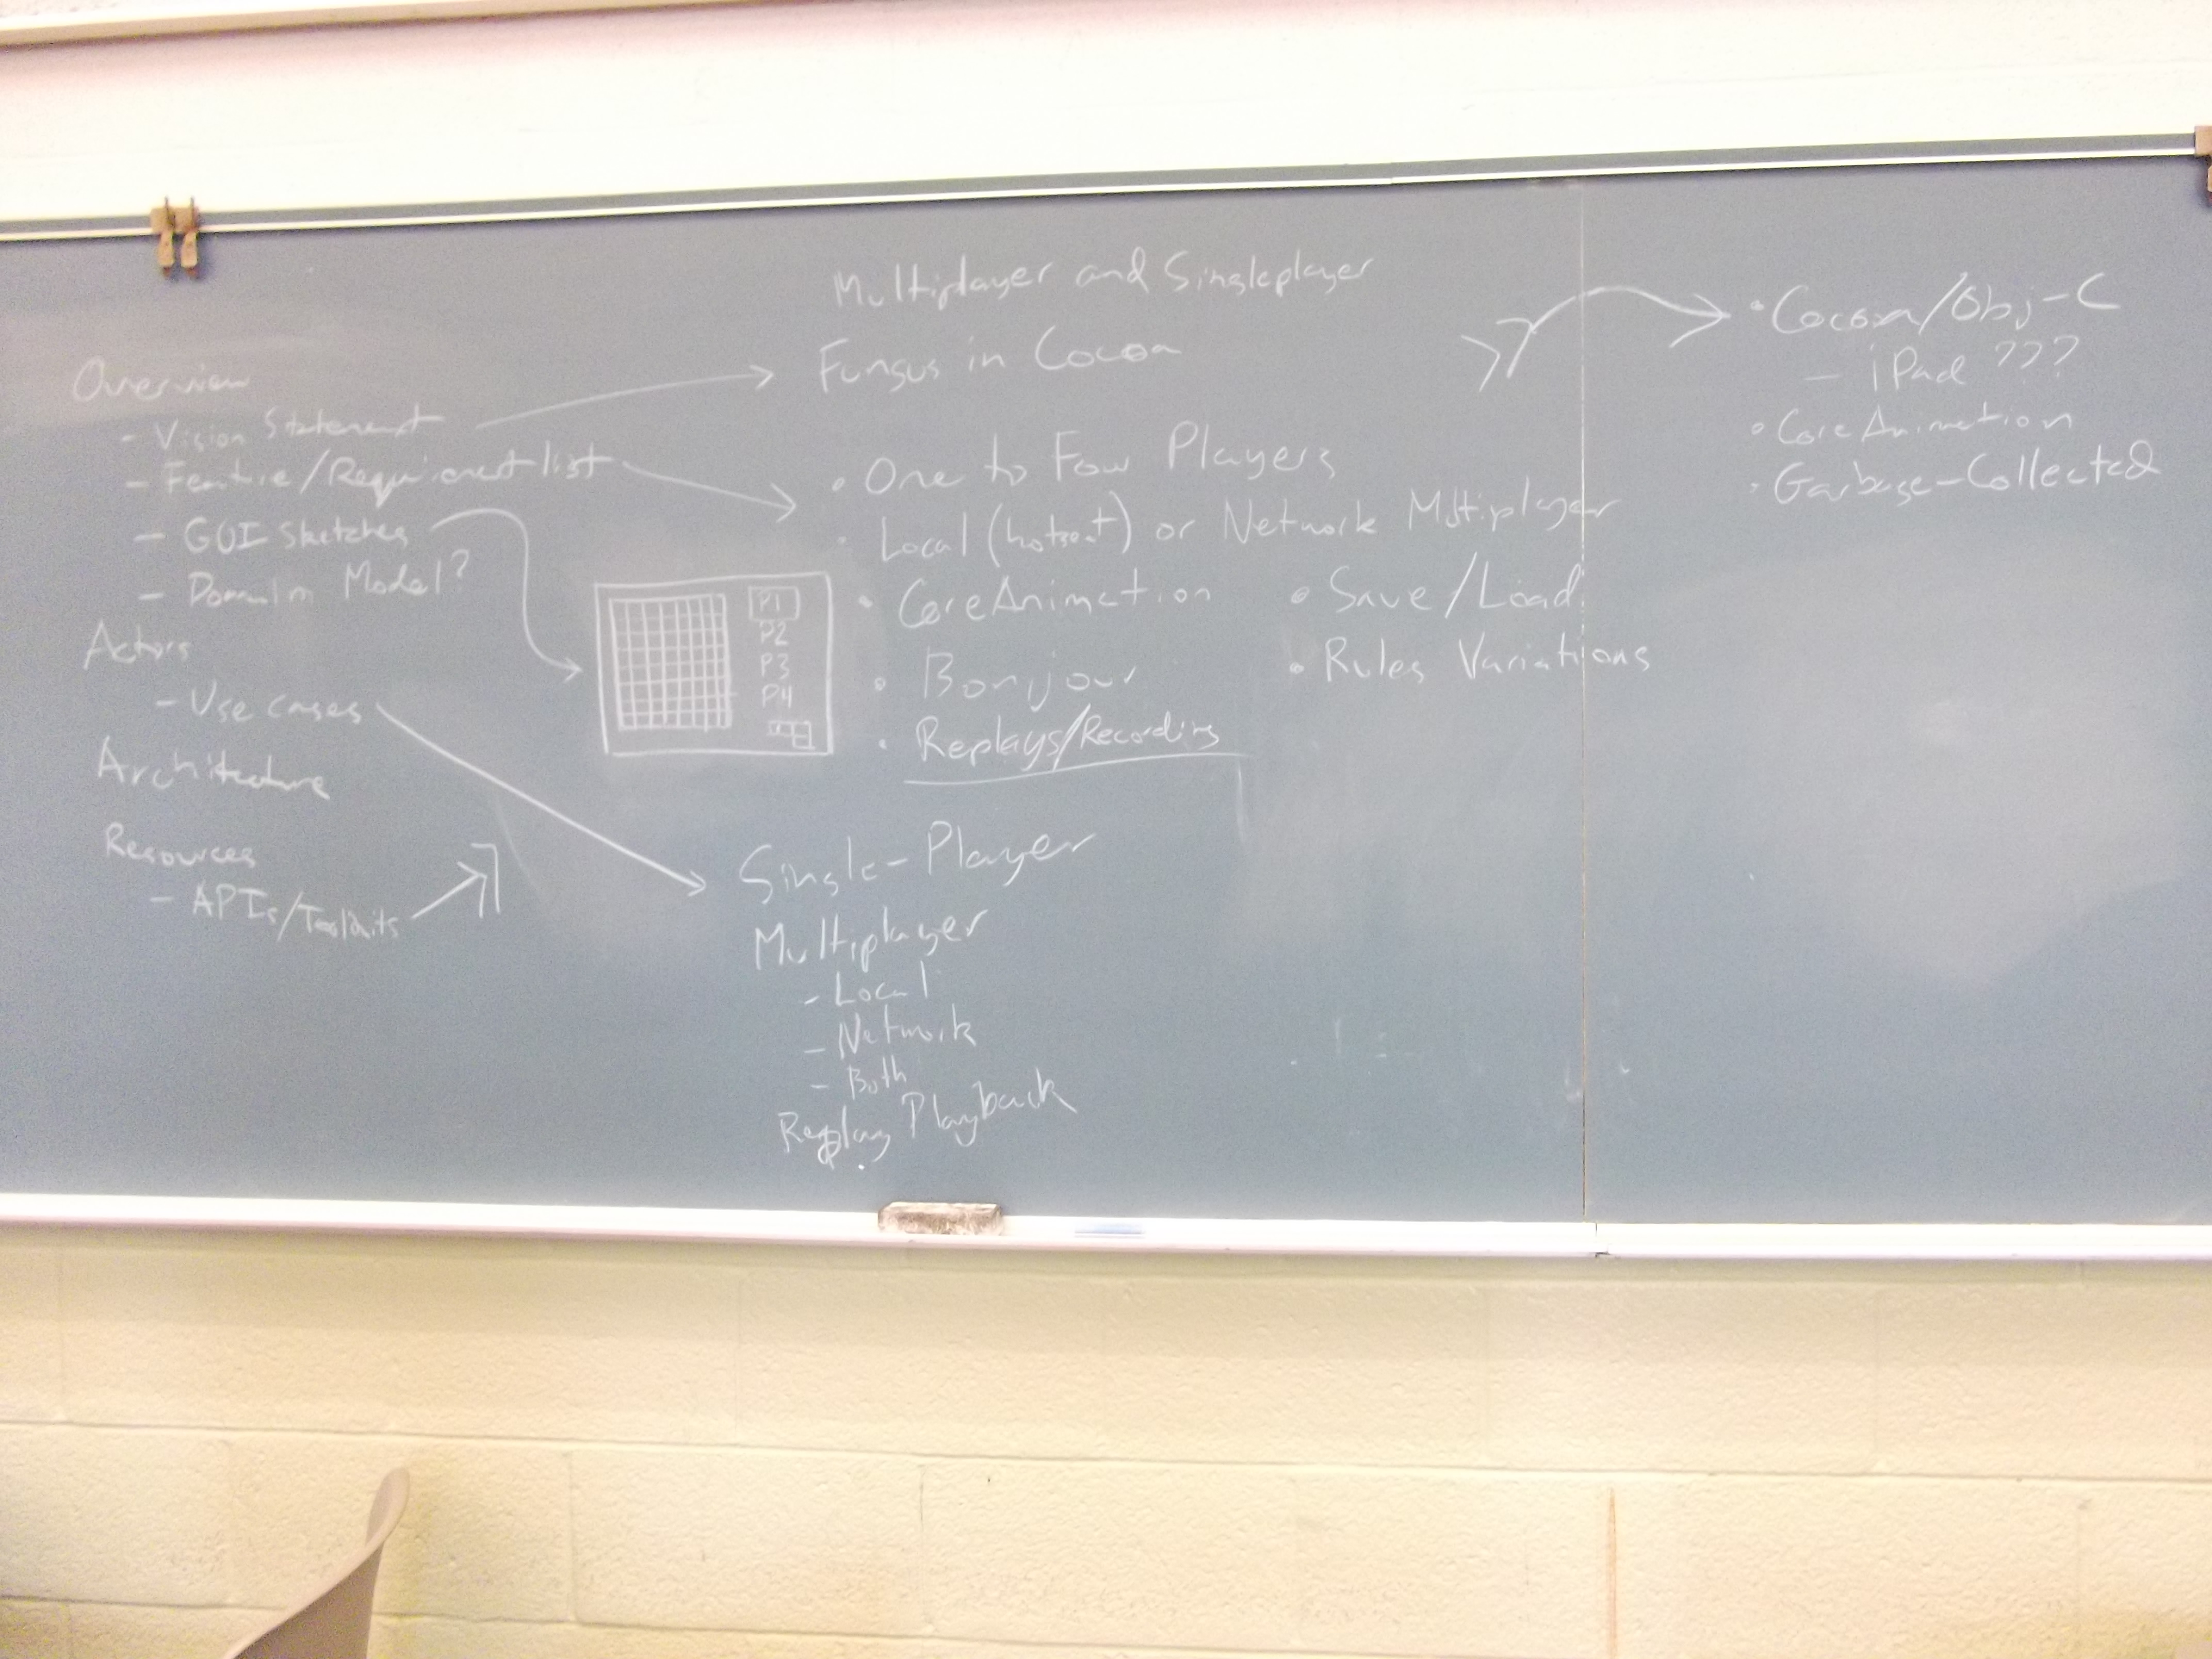 Overview
- Vision Statement
- Feature/Requirement list
- GUI Sketches
- Domain Model?
Actors
- Use cases
Architecture
Resources
- APIs/Toolkits
Multiplayer and Singleplayer
Fungus in Cocoa
• One to Four Players
• Local (hotseat) or Network Multiplayer
• CoreAnimation
• Bonjour
• Replays/Recording
• Save/Load
• Rules Variations
P1
P2
P3
P4
Single-Player
Multiplayer
- Local
- Network
- Both
Replay Playback
• Cocoa/Obj-C
- iPad ???
• CoreAnimation
• Garbage-Collected